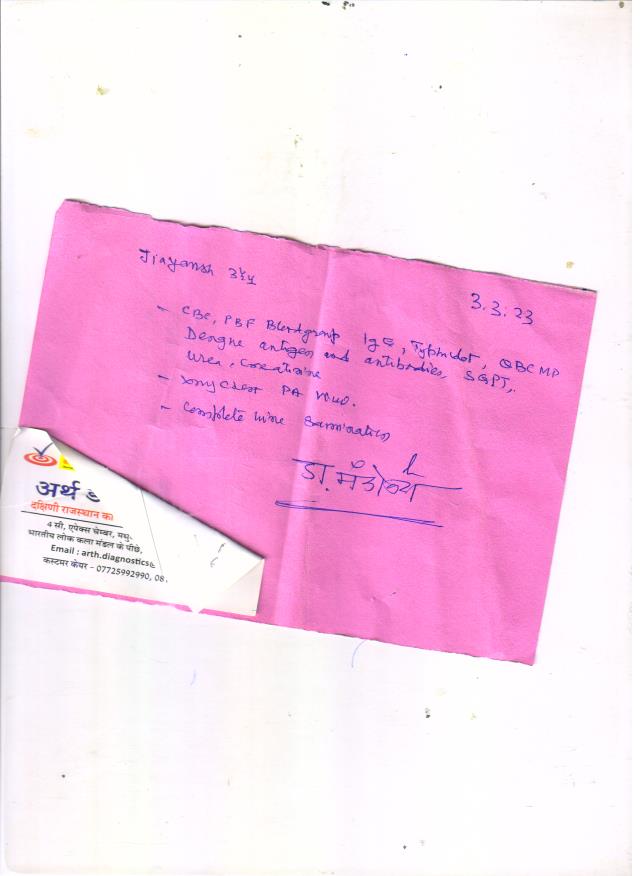 Jiayansh 3½y
3.3.23
- CBC, PBF Blood group IgE, Typhidot, QBC MP
Dengue antigen and antibodies, SGPT,
Urea, Creatinine
- Xray Chest PA View.
- Complete Urine Examination
डा. मंडोव्या
अर्थ
दक्षिणी राजस्थान का
4 सी, एपेक्स चेम्बर, मधु-
भारतीय लोक कला मंडल के पीछे,
Email : arth.diagnostics
कस्टमर केयर - 07725992990, 08